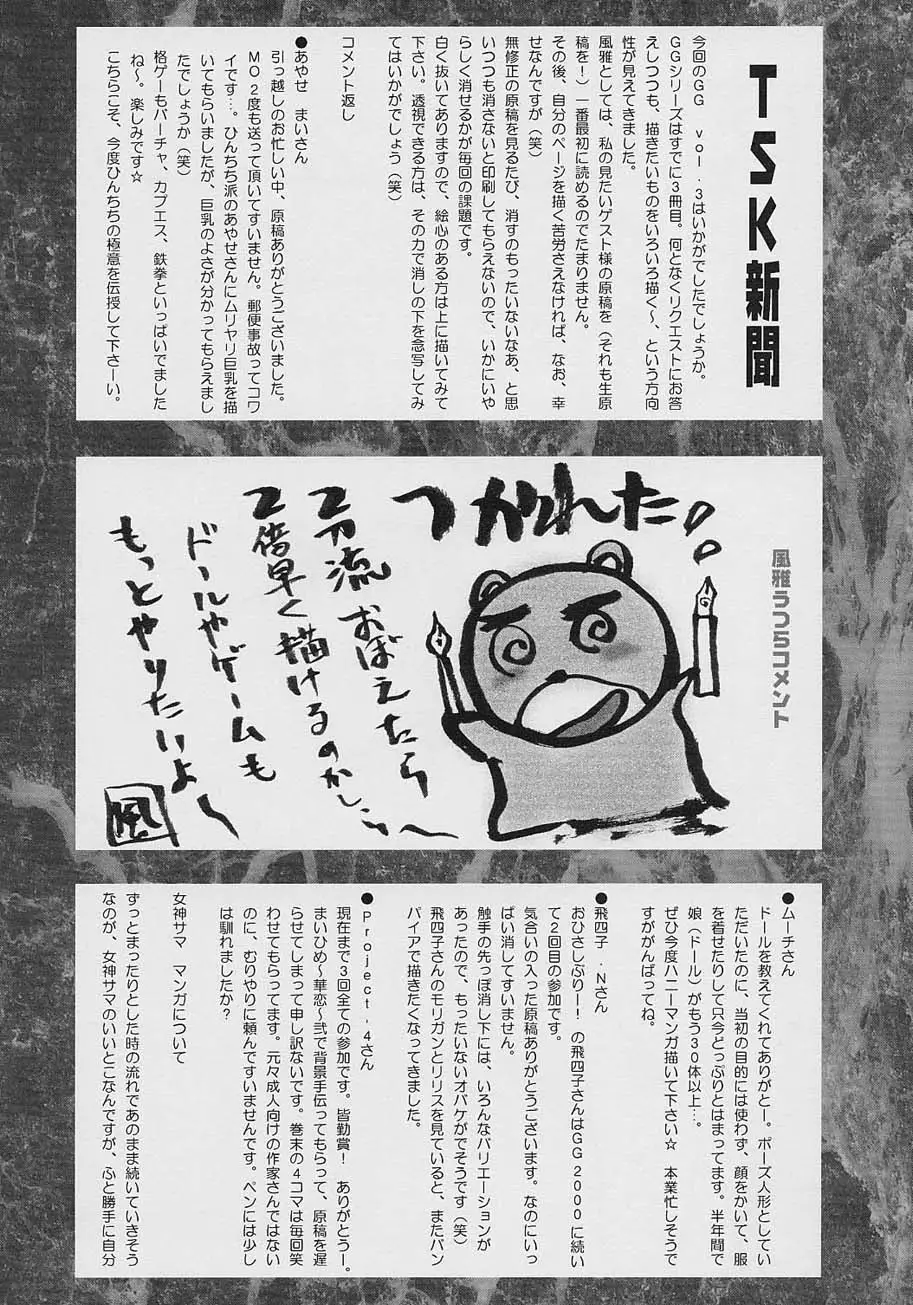 TSK新聞
今回のGG vol.3はいかがでしたでしょうか。
GGシリーズはすでに3冊目。何となくリクエストにお答
えしつつも、描きたいものをいろいろ描く〜、という方向
性が見えてきました。
風雅としては、私の見たいゲスト様の原稿を（それも生原
稿を！）一番最初に読めるのでたまりません。
その後、自分のページを描く苦労さえなければ、なお、幸
せなんですが（笑）
無修正の原稿を見るたび、消すのもったいないなあ、と思
いつつも消さないと印刷してもらえないので、いかにいや
らしく消せるかが毎回の課題です。
白く抜いてありますので、絵心のある方は上に描いてみて
下さい。透視できる方は、その力で消しの下を念写してみ
てはいかがでしょう（笑）
コメント返し
●あやせ まいさん
引っ越しのお忙しい中、原稿ありがとうございました。
MO2度も送って頂いてすいません。郵便事故ってコワ
イです…。ひんちち派のあやせさんにムリヤリ巨乳を描
いてもらいましたが、巨乳のよさが分かってもらえまし
たでしょうか（笑）
格ゲーもバーチャ、カプエス、鉄拳といっぱいでました
ね〜。楽しみです☆
こちらこそ、今度ひんちちの極意を伝授して下さーい。
風雅うつらコメント
つかれた
2刀流おぼえたら
2倍早く描けるのかしら〜
ドールやゲームも
もっとやりたいよ〜
風
●ムーチさん
ドールを教えてくれてありがとー。ポーズ人形としてい
ただいたのに、当初の目的には使わず、顔をかいて、服
を着せたりして只今どっぷりとはまってます。半年間で
娘（ドール）がもう30体以上…。
ぜひ今度ハニーマンガ描いて下さい☆ 本業忙しそうで
すががんばってね。
●飛四子・Nさん
おひさしぶりー！ の飛四子さんはGG2000に続い
て2回目の参加です。
気合いの入った原稿ありがとうございます。なのにいっ
ぱい消してすいません。
触手の先っぽ消し下には、いろんなバリエーションが
あったので、もったいないオバケがでそうです（笑）
飛四子さんのモリガンとリリスを見ていると、またバン
パイアで描きたくなってきました。
●Project-4さん
現在まで3回全ての参加です。皆勤賞！ ありがとうー。
まいひめ〜華恋〜弐で背景手伝ってもらって、原稿を遅
らせてしまって申し訳ないです。巻末の4コマは毎回笑
わせてもらってます。元々成人向けの作家さんではない
のに、むりやりに頼んですいませんです。ペンには少し
は馴れましたか？
女神サマ マンガについて
ずっとまったりとした時の流れであのまま続いていきそう
なのが、女神サマのいいとこなんですが、ふと勝手に自分